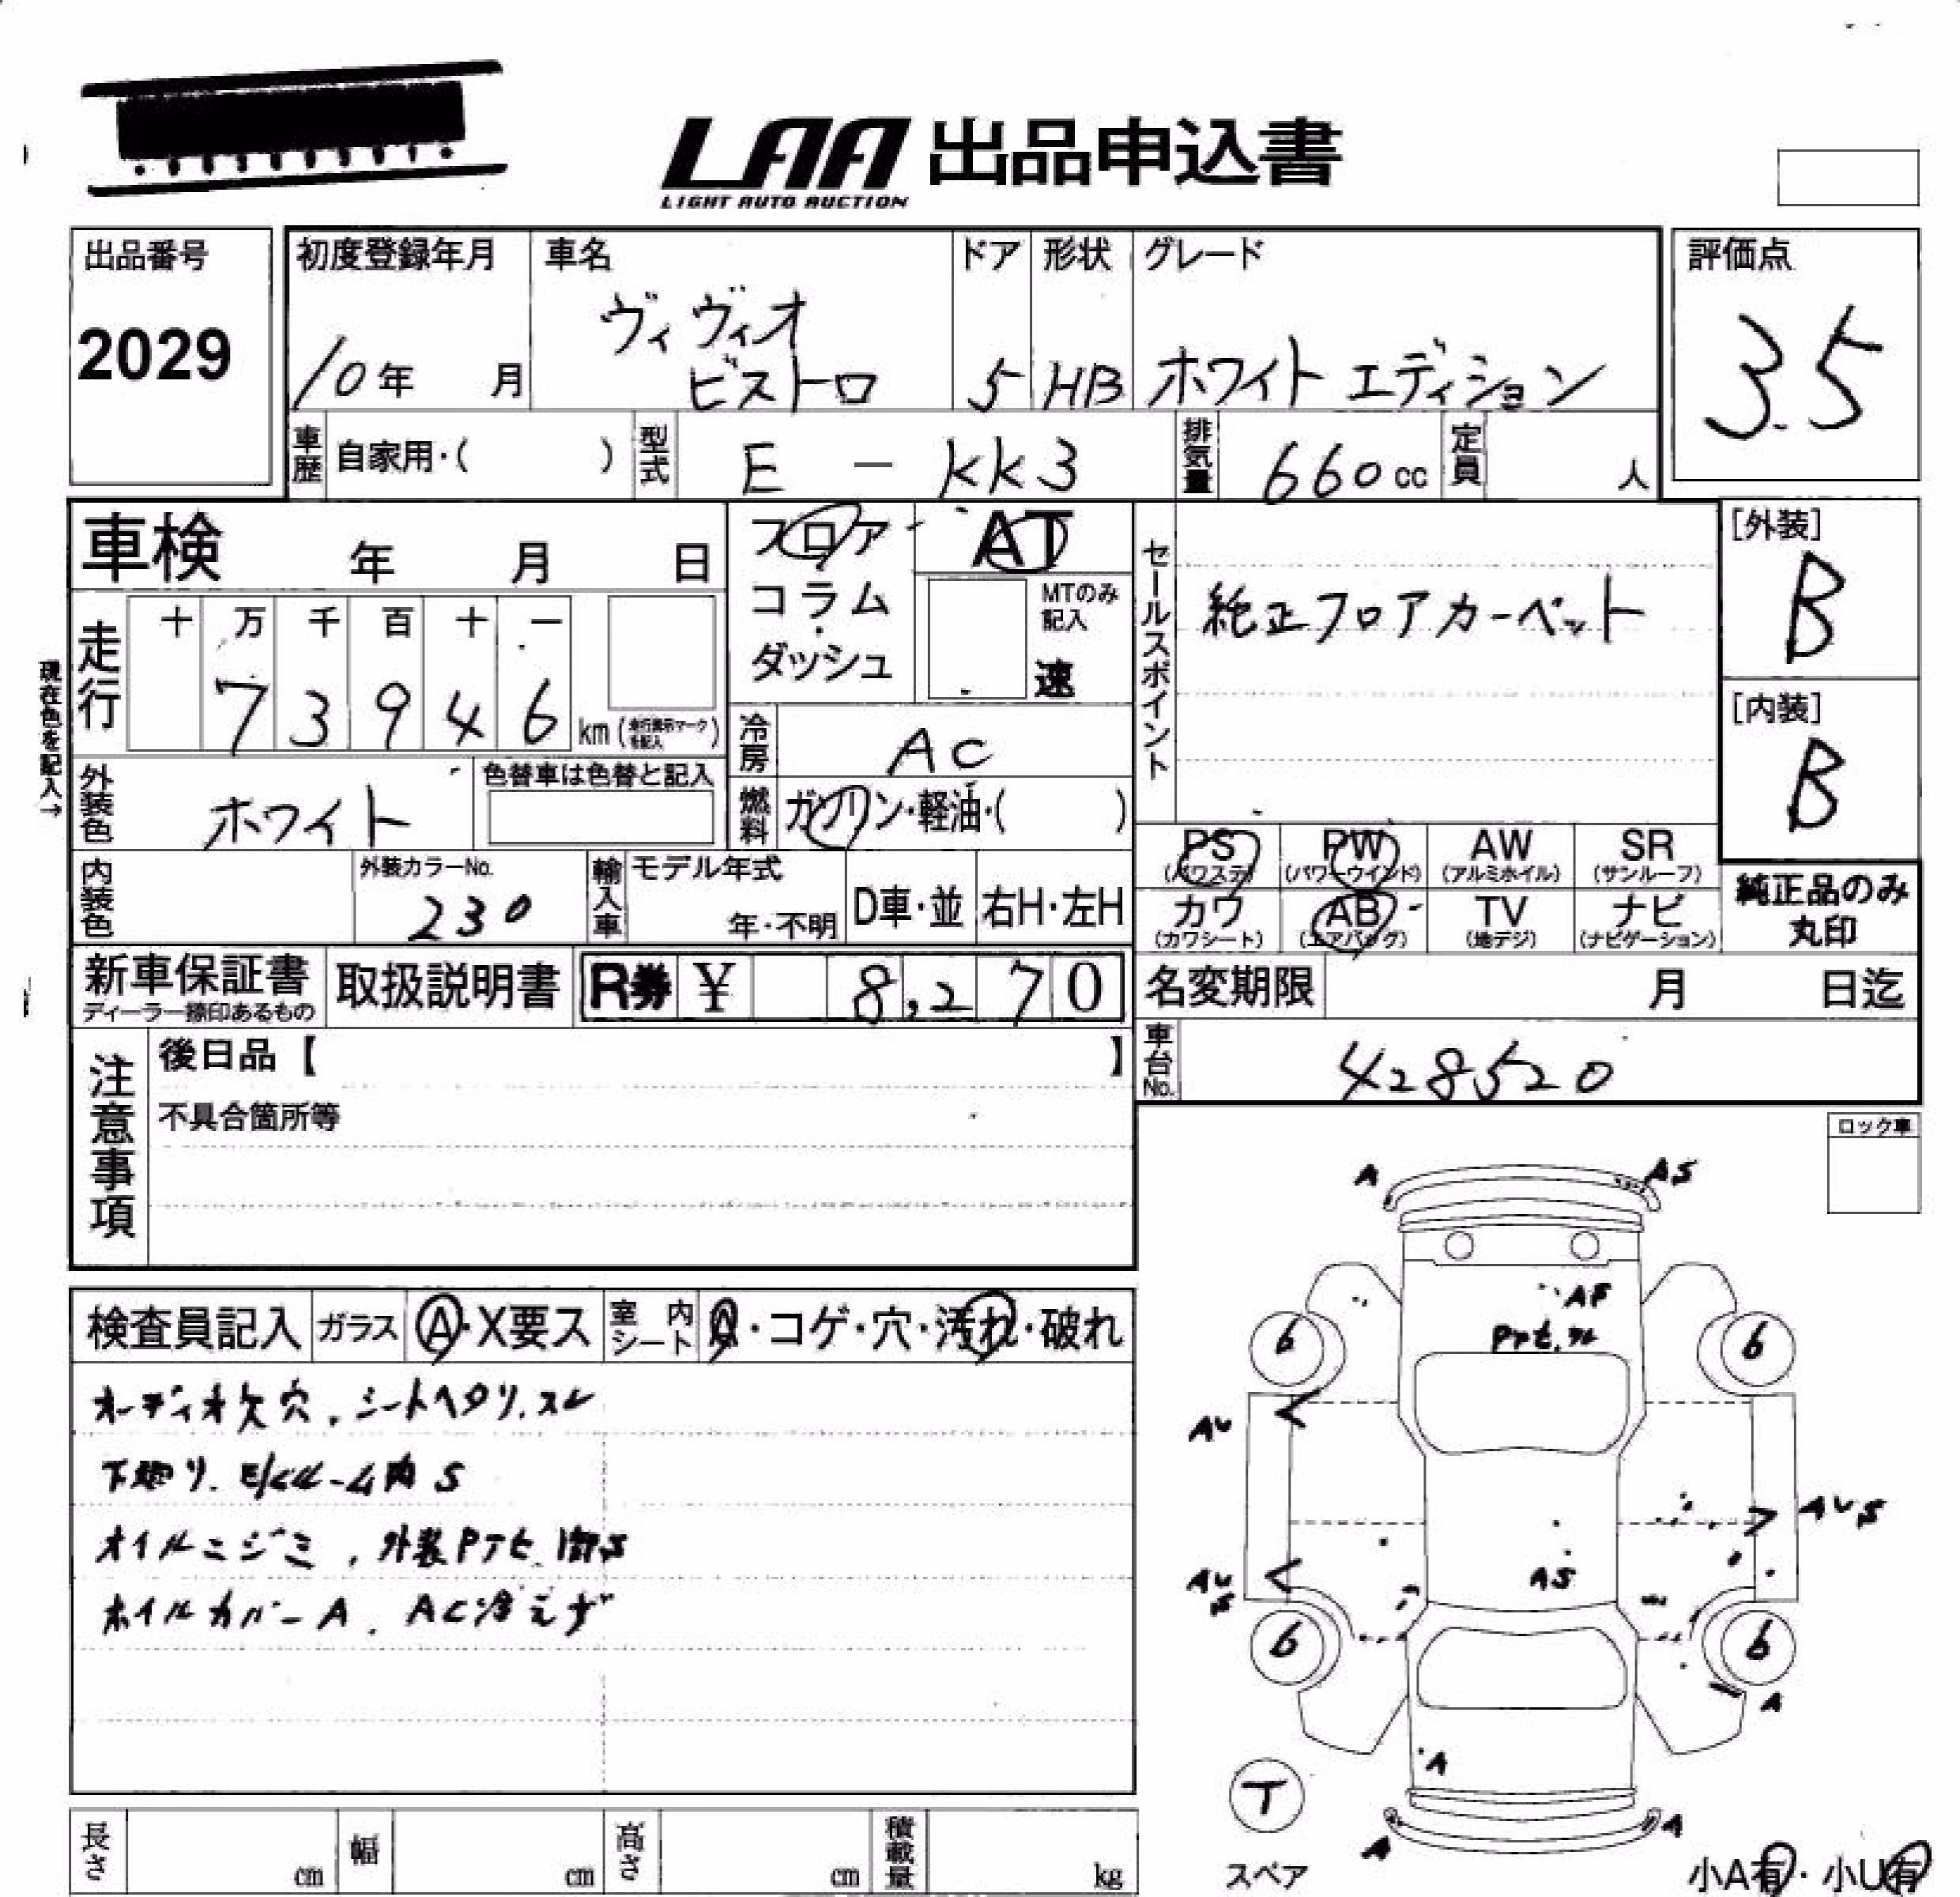 LAA 出品申込書
LIGHT AUTO AUCTION
出品番号
2029
初度登録年月
10年 月
車名
ヴィヴィオ
ビストロ
ドア
5
形状
HB
グレード
ホワイト エディション
評価点
3.5
車歴 自家用・( )
型式 E - KK3
排気量 660cc
定員 人
車検 年 月 日
走行
十 万 千 百 十 一
7 3 9 4 6 km
現在色を記入→
フロア・
コラム
・
ダッシュ
AT
MTのみ
記入
速
冷房 AC
燃料 ガソリン・軽油・( )
セールスポイント
純正フロアカーペット
[外装]
B
[内装]
B
外装色 ホワイト
色替車は色替と記入
内装色
外装カラーNo.
230
輸入車
モデル年式
年・不明
D車・並
右H・左H
PS (パワステ)
PW (パワーウインド)
AW (アルミホイル)
SR (サンルーフ)
カワ (カワシート)
AB (エアバッグ)
TV (地デジ)
ナビ (ナビゲーション)
純正品のみ
丸印
新車保証書
ディーラー捺印あるもの
取扱説明書
R券 ¥ 8,270
名変期限 月 日迄
車台No. 428520
注意事項
後日品【 】
不具合箇所等
ロック車
検査員記入
ガラス A・X要ス
室内シート A・コゲ・穴・汚れ・破れ
オーディオ欠穴、シートヘタリ、スレ
下廻り、E/ルーム内 S
オイルニジミ、外装Pタヒ、
ホイルカバーA、AC冷えず
A
AS
AF
6
6
AU
AU
S
AS
AU
S
6
6
A
A
A
A
T
スペア
小A有・小U有
長さ cm
幅 cm
高さ cm
積載量 kg